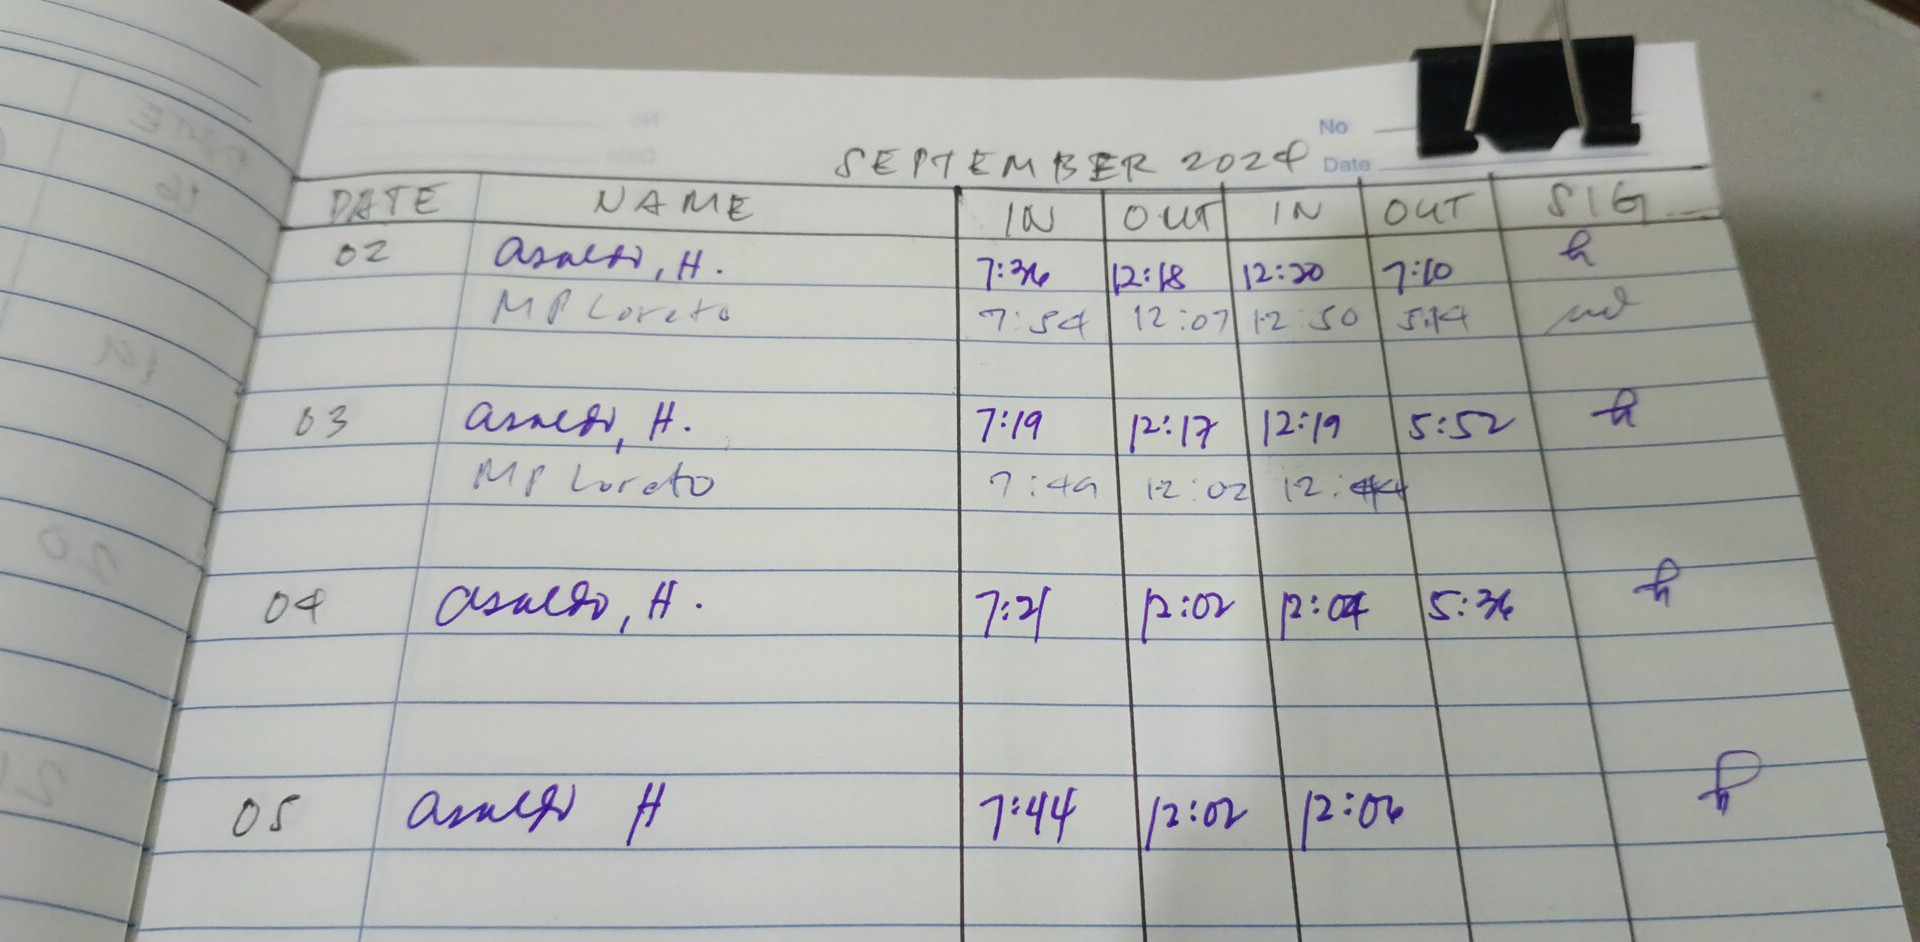 No
SEPTEMBER 2024 Date
DATE NAME IN OUT IN OUT SIG
02 Asaldo, H. 7:36 12:18 12:20 7:10
MP Loreto 7:54 12:07 12:50 5:14
03 Asaldo, H. 7:19 12:17 12:19 5:52
MP Loreto 7:49 12:02 12:44
04 Asaldo, H. 7:21 12:02 12:04 5:36
05 Asaldo H 7:44 12:02 12:06